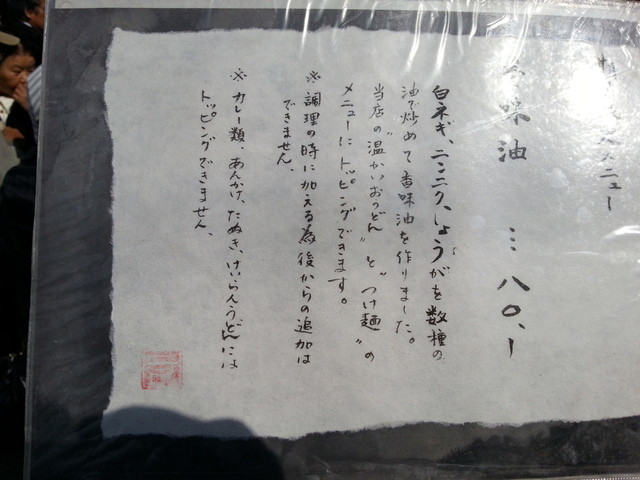 メニュー
味油 …八〇、ー
白ネギ、ニンニク、しょうがを数種の
油で炒めて香味油を作りました。
当店の“温かいおうどん”と“つけ麺”の
メニューにトッピングできます。
※調理の時に加える為後からの追加は
できません。
※カレー類、あんかけ、たぬき、けいらんうどんには
トッピングできません。